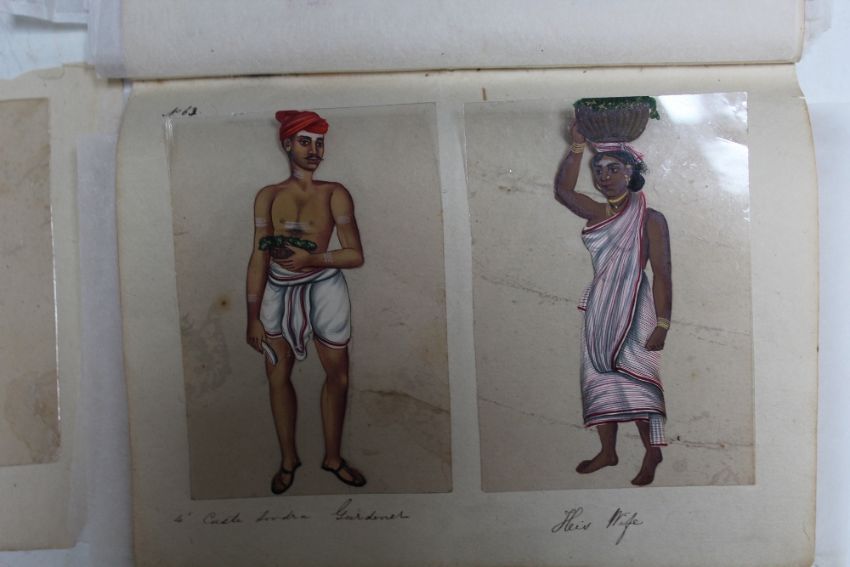 No 63.
4' Caste Soodra Gardener
His Wife